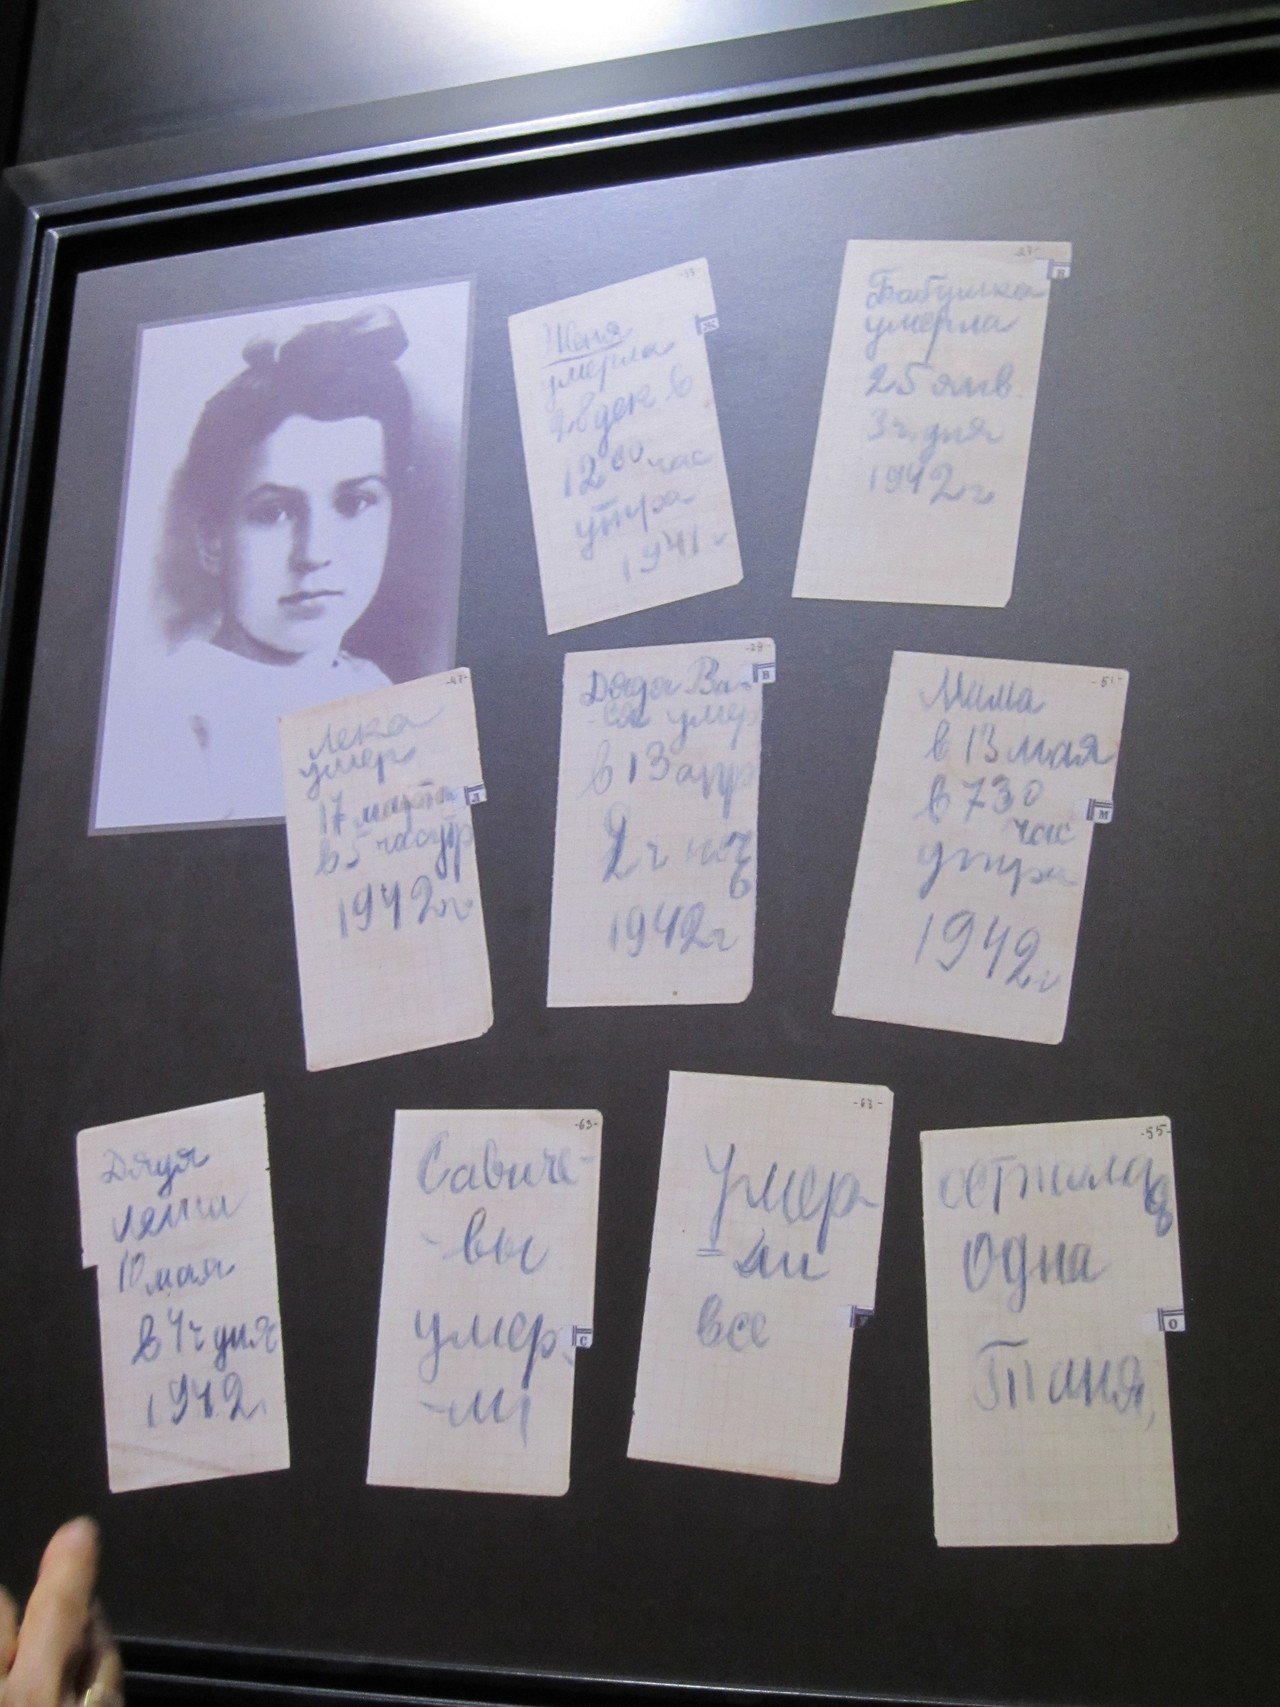 -13-
Ж
Женя
умерла
28 дек в
12 00 час
утра
1941 г
-27-
Б
Бабушка
умерла
25 янв.
3 ч. дня
1942 г
-47-
Л
Лека
умер
17 марта
в 5 час утр
1942 г.
-29-
В
Дядя Ва-
ся умер
в 13 апр
2 ч ноч
ь
1942 г
-51-
М
Мама
в 13 мая
в 7 30
час
утра
1942 г
Дядя
Леша
10 мая
в 4 ч дня
1942.
-63-
С
Савиче-
-вы
умер
-ли
-67-
У
Умер
=ли
все
-55-
О
осталас
одна
Таня,